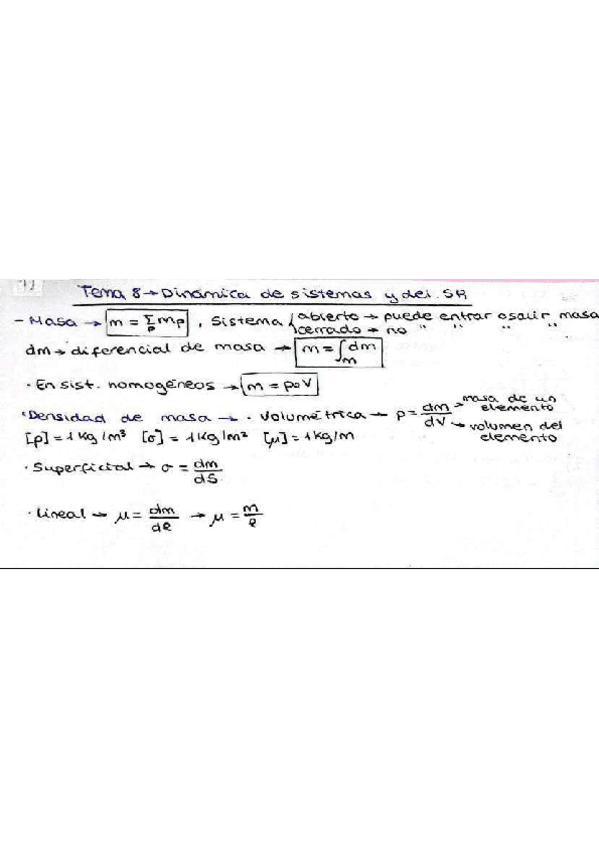 Tema 8 → Dinámica de sistemas y del SR
- Masa → m = Σ_p m_p , Sistema { abierto → puede entrar o salir masa
cerrado → no " " " "
dm → diferencial de masa → m = ∫_m dm
· En sist. homogéneos → m = ρ·V
· Densidad de masa → · Volumétrica → ρ = dm/dV → masa de un elemento
→ volumen del elemento
[ρ] = 1 kg/m³ [σ] = 1 kg/m² [μ] = 1 kg/m
· Superficial → σ = dm/dS
· Lineal → μ = dm/dl → μ = m/l